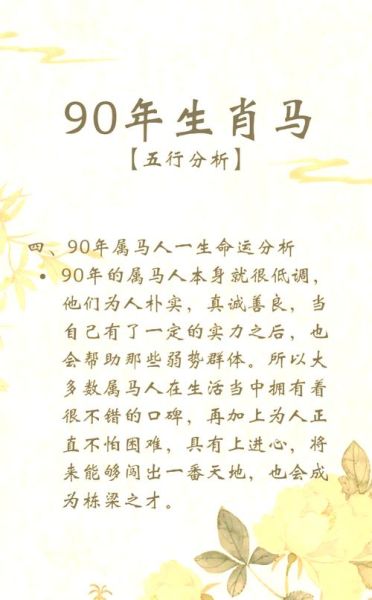 90年生肖马
【五行分析】
四、90年属马人一生命运分析
• 90年的属马人本身就很低调，
他们为人朴实，真诚善良，当
自己有了一定的实力之后，也
会帮助那些弱势群体。所以大
多数属马人在生活当中拥有着
很不错的口碑，再加上为人正
直不怕困难，具有上进心，将
来能够闯出一番天地，也会成
为栋梁之才。